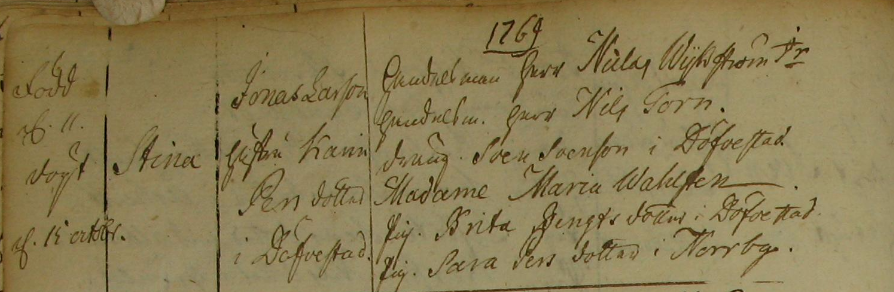 1769
Född
d. 11.
döpt
d. 15 octobr.
Stina
Jonas Larson
hustru Karin
Pers dotter
i Döfvestad.
Handelsman Herr Niclas Wijkström Jr
Handelsm. Herr Nils Torn.
dräng. Sven Svenson i Döfvestad
Madame Maria Wahlsten
Pig. Brita Bengts dotter i Döfvestad
Pig. Sara Pers dotter i Norrby.